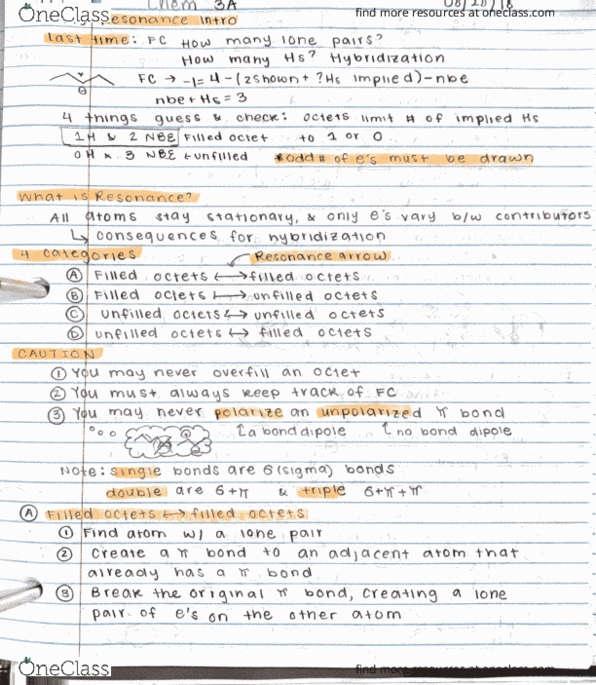 OneClass
find more resources at oneclass.com
Chem 3A
08/28/18
Resonance Intro
Last time: FC How many lone pairs?
How many Hs? Hybridization
FC → -1 = 4 - (2 shown + ?Hs implied) - nbe
nbe + Hs = 3
4 things guess & check: octets limit # of implied Hs
1H & 2 NBE Filled octet to 1 or 0
0H & 3 NBE unfilled *odd # of e's must be drawn
What is Resonance?
All atoms stay stationary, & only e's vary b/w contributors
↳ consequences for hybridization
4 categories Resonance arrow
Ⓐ Filled octets ⟷ filled octets
Ⓑ Filled octets ⟷ unfilled octets
Ⓒ unfilled octets ⟷ unfilled octets
Ⓓ unfilled octets ⟷ filled octets
CAUTION
① You may never overfill an octet
② You must always keep track of FC
③ You may never polarize an unpolarized π bond
↑ a bond dipole ↑ no bond dipole
Note: single bonds are 6 (sigma) bonds
double are 6+π & triple 6+π+π
Ⓐ Filled octets ⟷ filled octets
① Find atom w/ a lone pair
② Create a π bond to an adjacent atom that
already has a π bond
③ Break the original π bond, creating a lone
pair of e's on the other atom
OneClass
find more resources at oneclass.com